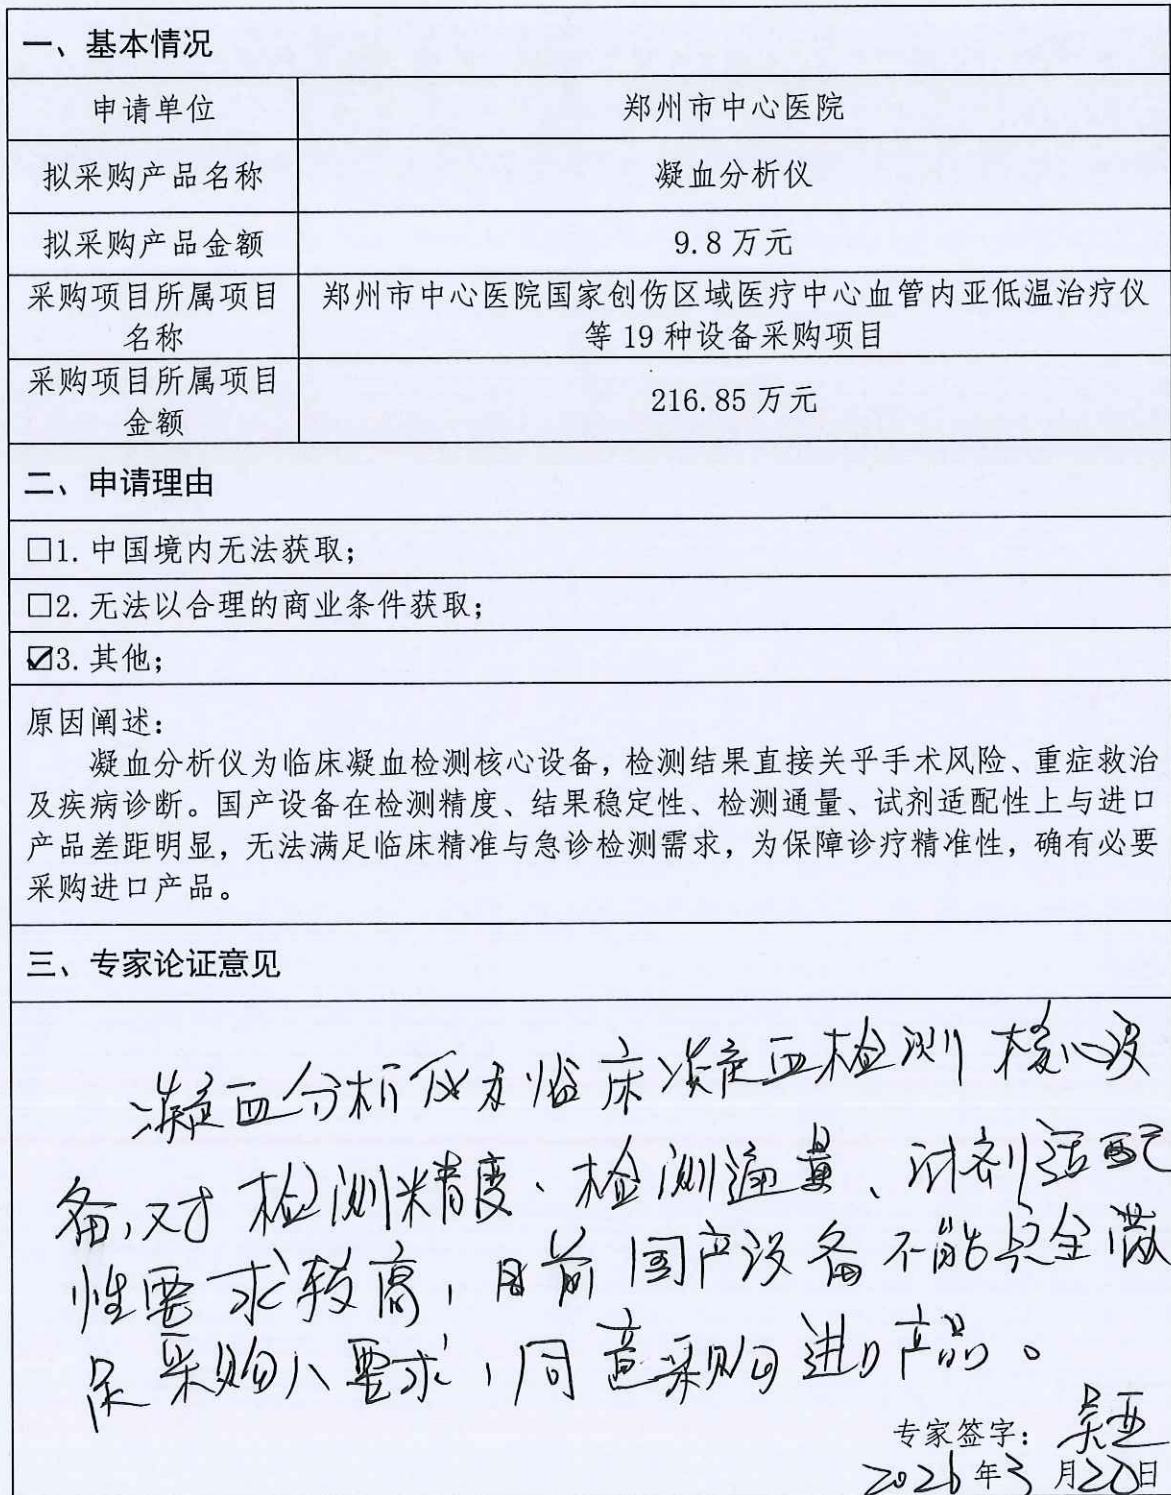 一、基本情况
申请单位 郑州市中心医院
拟采购产品名称 凝血分析仪
拟采购产品金额 9.8万元
采购项目所属项目 郑州市中心医院国家创伤区域医疗中心血管内亚低温治疗仪
名称 等19种设备采购项目
采购项目所属项目
金额 216.85万元
二、申请理由
□1.中国境内无法获取;
□2.无法以合理的商业条件获取;
☑3.其他;
原因阐述:
凝血分析仪为临床凝血检测核心设备,检测结果直接关乎手术风险、重症救治
及疾病诊断。国产设备在检测精度、结果稳定性、检测通量、试剂适配性上与进口
产品差距明显,无法满足临床精准与急诊检测需求,为保障诊疗精准性,确有必要
采购进口产品。
三、专家论证意见
凝血分析仪为临床凝血检测核心设
备,对检测精度、检测通量、试剂适配
性要求较高,目前国产设备不能完全满
足采购人要求,同意采购进口产品。
专家签字:
2026年3月 日